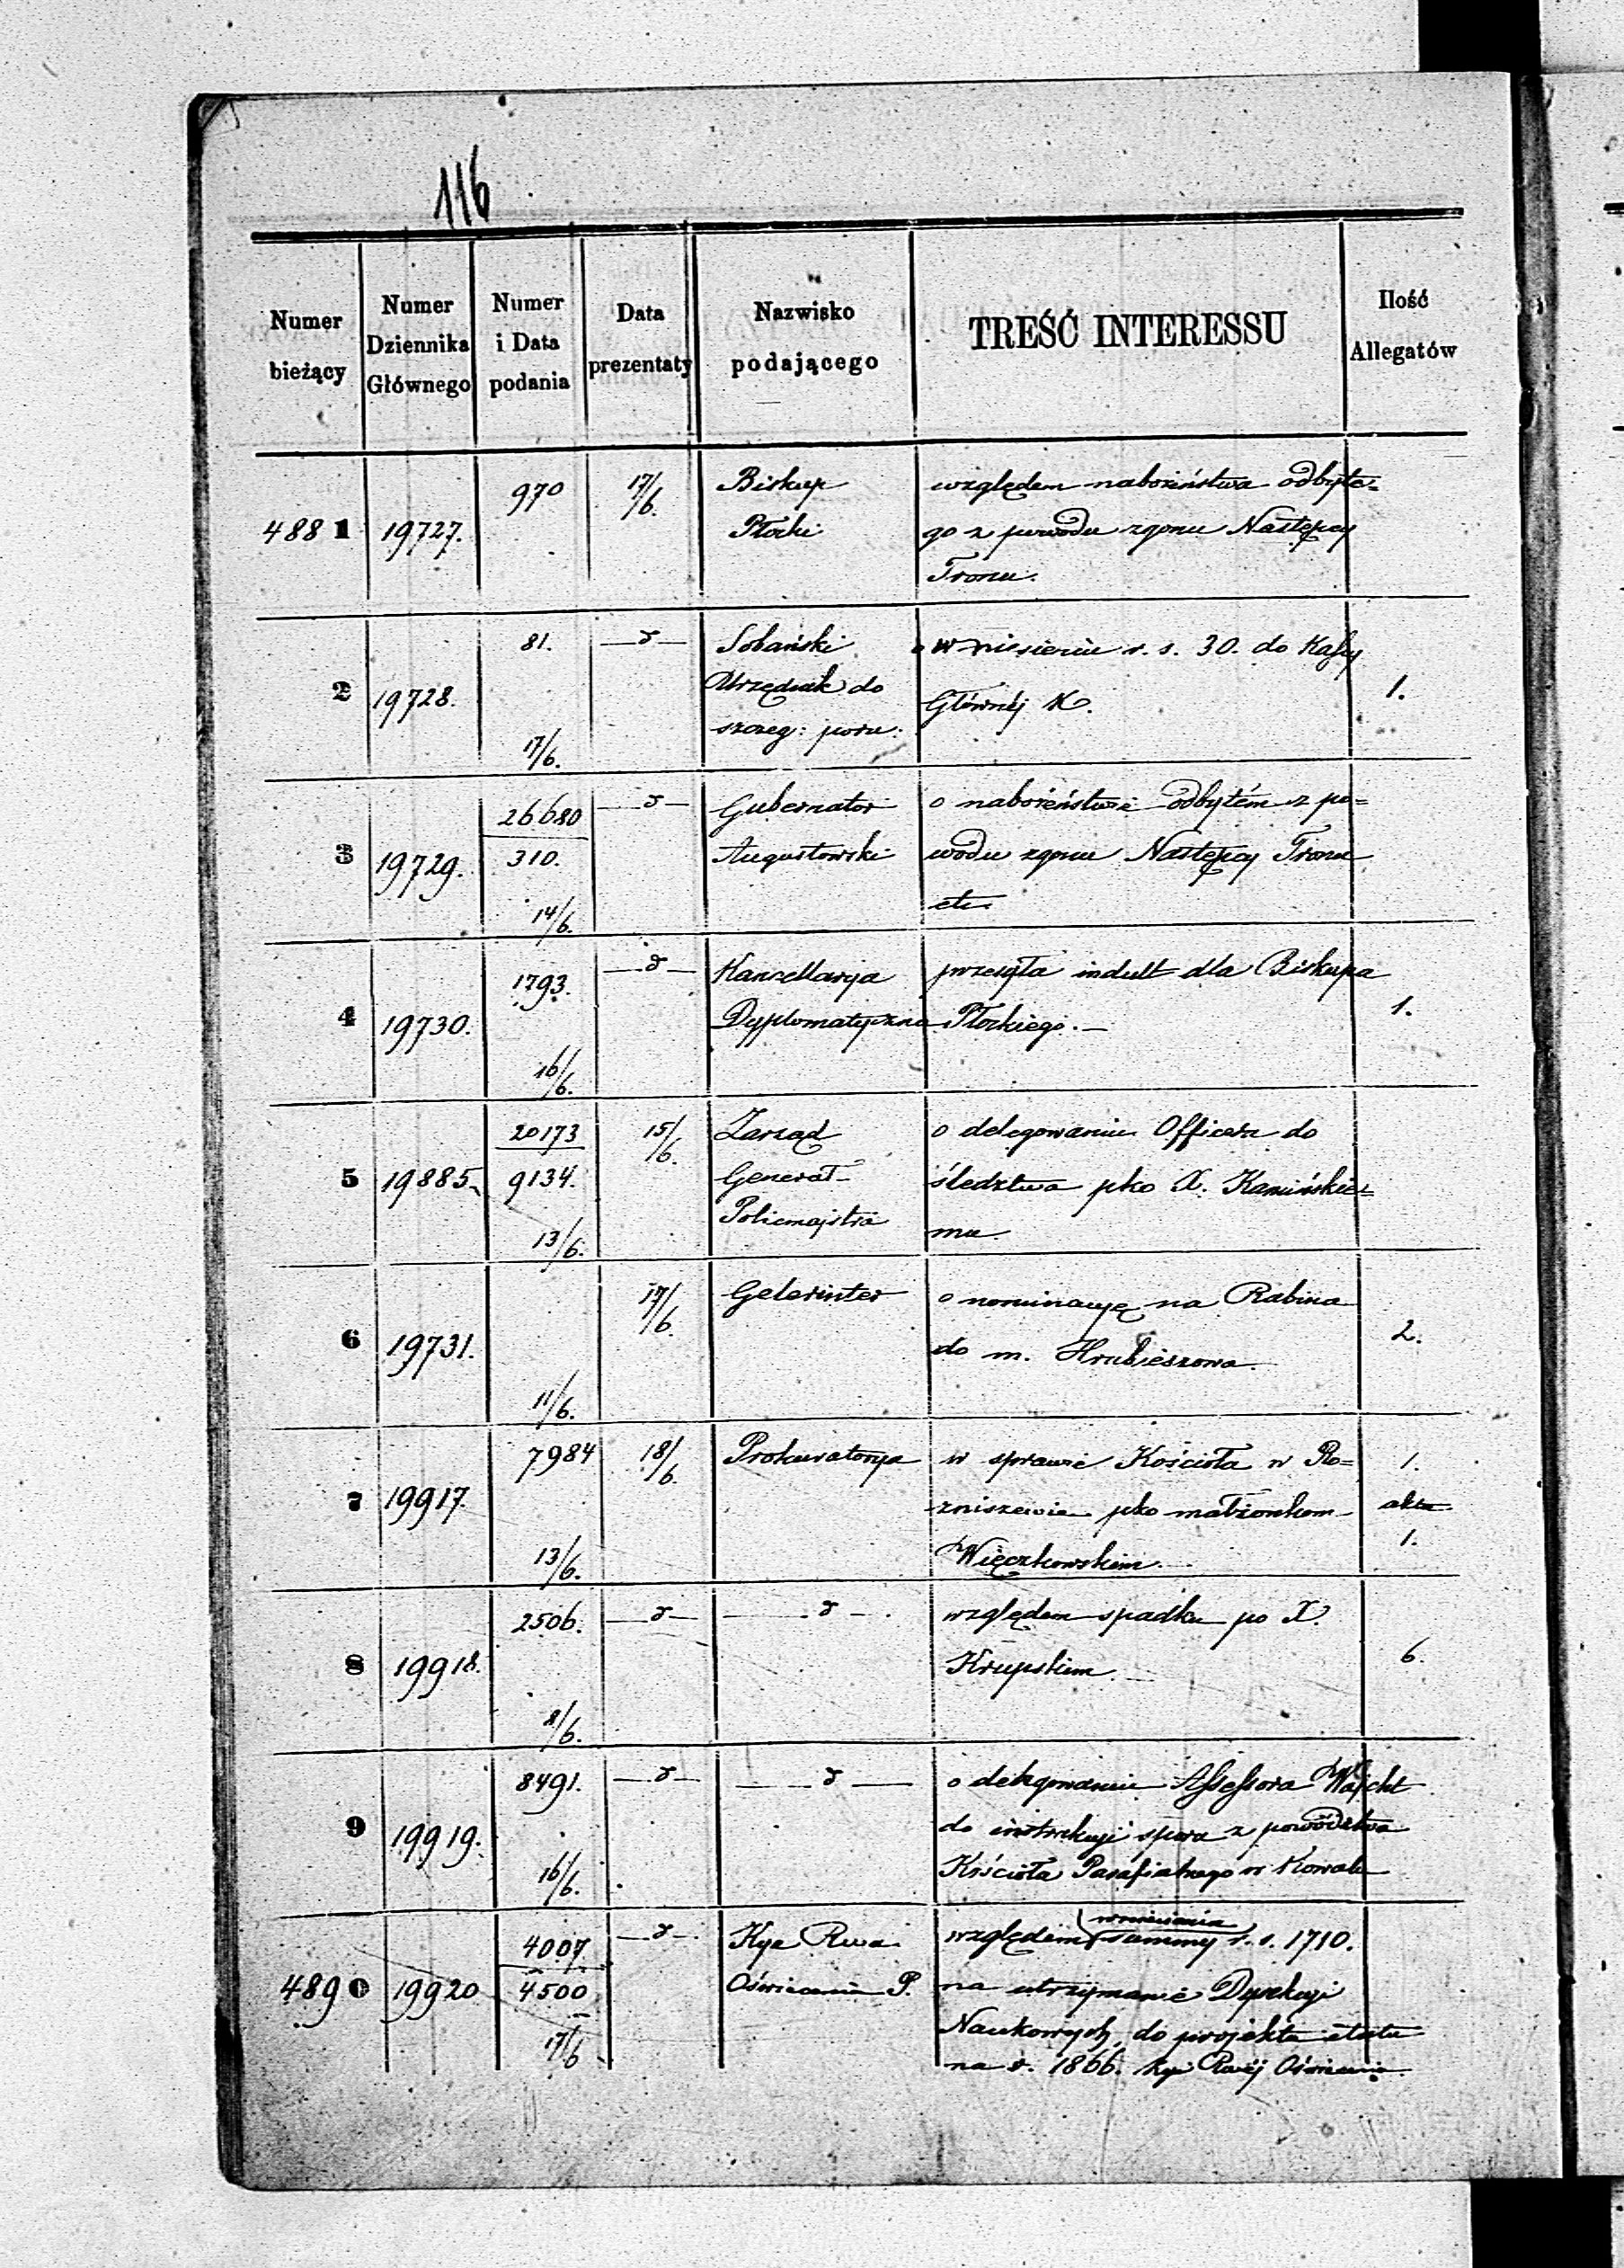 116
Numer bieżący
Numer Dziennika Głównego
Numer i Data podania
Data prezentaty
Nazwisko podającego
TREŚĆ INTERESSU
Ilość Allegatów
4881
19727.
970
17/6.
Biskup
Płocki
względem nabożeństwa odbyte=
go z powodu zgonu Następcy
Tronu.
2
19728.
81.
17/6.
—d—
Sobański
Urzędnik do
szczeg: poru.
o wniesieniu r. s. 30. do Kassy
Głównéj K.
1.
3
19729.
26680
310.
14/6.
—d—
Gubernator
Augustowski
o nabożeństwie odbytém z po=
wodu zgonu Następcy Tronu
etc
4
19730.
1793.
16/6.
—d—
Kancellarya
Dyplomatyczna
przesyła indult dla Biskupa
Płockiego.—
1.
5
19885
20173
9134.
13/6.
15/6.
Zarząd
Generał-
Policmajstra
o delegowaniu Officera do
śledztwa pko X. Kamińskie=
mu
6
19731.
11/6.
17/6.
Gelernter
o nominacyę na Rabina
do m. Hrubieszowa.
2.
7
19917.
7984
13/6.
18/6.
Prokuratorya
w sprawie Kościoła w Ro=
zniszewie pko małżonkom
Więczkowskim.
1.
akta
1.
8
19918.
2506.
8/6.
—d—
—d—
względem spadku po X.
Krupskim
6.
9
19919.
8491.
16/6.
—d—
—d—
o delegowaniu Assessora
do instrukcyi sporu z powództwa
Kościoła Parafialnego w Kowalu
4890
19920
4007
4500
17/6
—d—
Kya Rwa
Oświecenia P.
względem wniesienia summy r. s. 1710.
na utrzymanie Dyrekcyi
Naukowych, do projektu etatu
na r. 1866. Kyi Rwéj Oświecenia